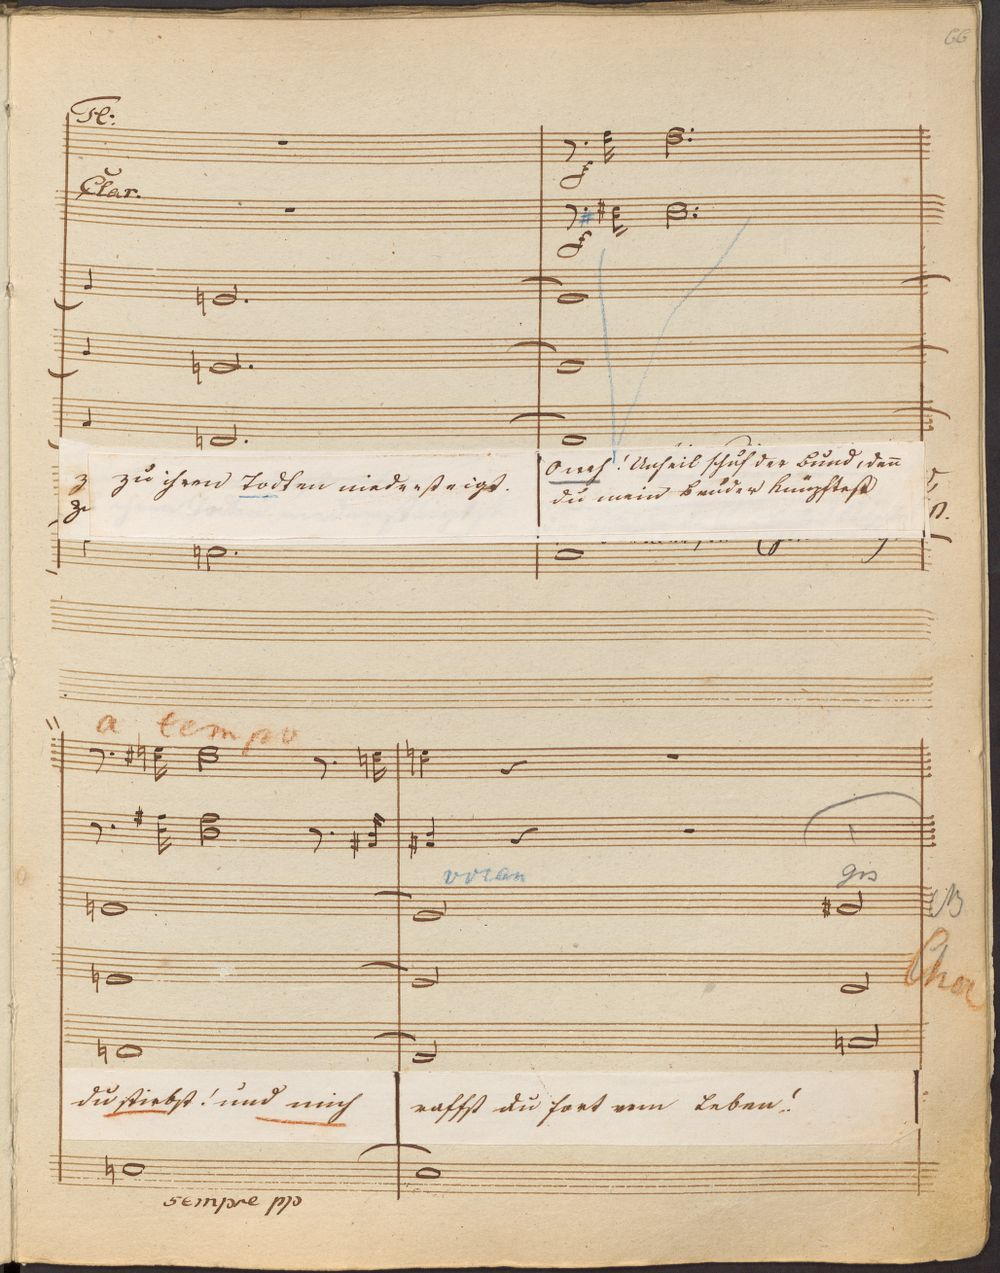 66
Fl:
Clar.
zu ihren Todten niedersteigt.
O weh! Unheil schuf der Bund, den
du mein Bruder knüpftest
a tempo
voran
gis
Chor
du stirbst! und mich
raffst du fort vom Leben!
sempre pp